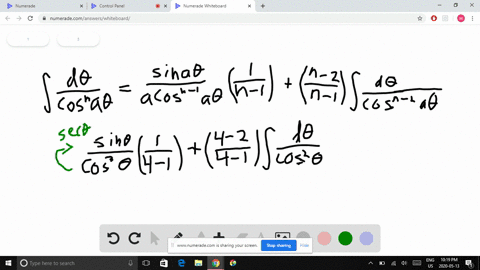 Numerade
Control Panel
Numerade Whiteboard
numerade.com/answers/whiteboard/
∫ dθ/cosⁿaθ = sinaθ/(a cosⁿ⁻¹ aθ) (1/(n-1)) + ((n-2)/(n-1)) ∫ dθ/cosⁿ⁻² aθ
secθ
sinθ/cos³θ (1/(4-1)) + ((4-2)/(4-1)) ∫ dθ/cos²θ
www.numerade.com is sharing your screen.
Stop sharing
Hide
Type here to search
ENG
10:19 PM
US
2020-05-13